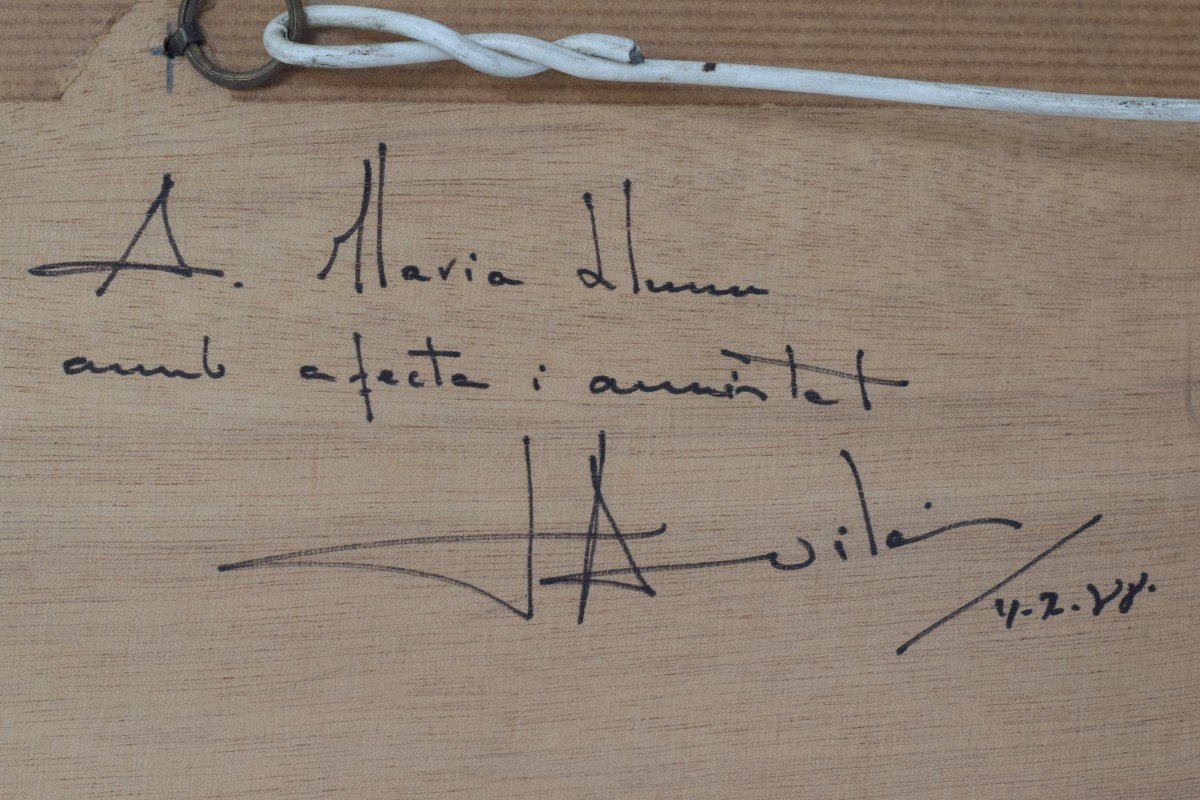 A. Maria Lluna
amb afecte i amistat
J Avila
4.2.88.